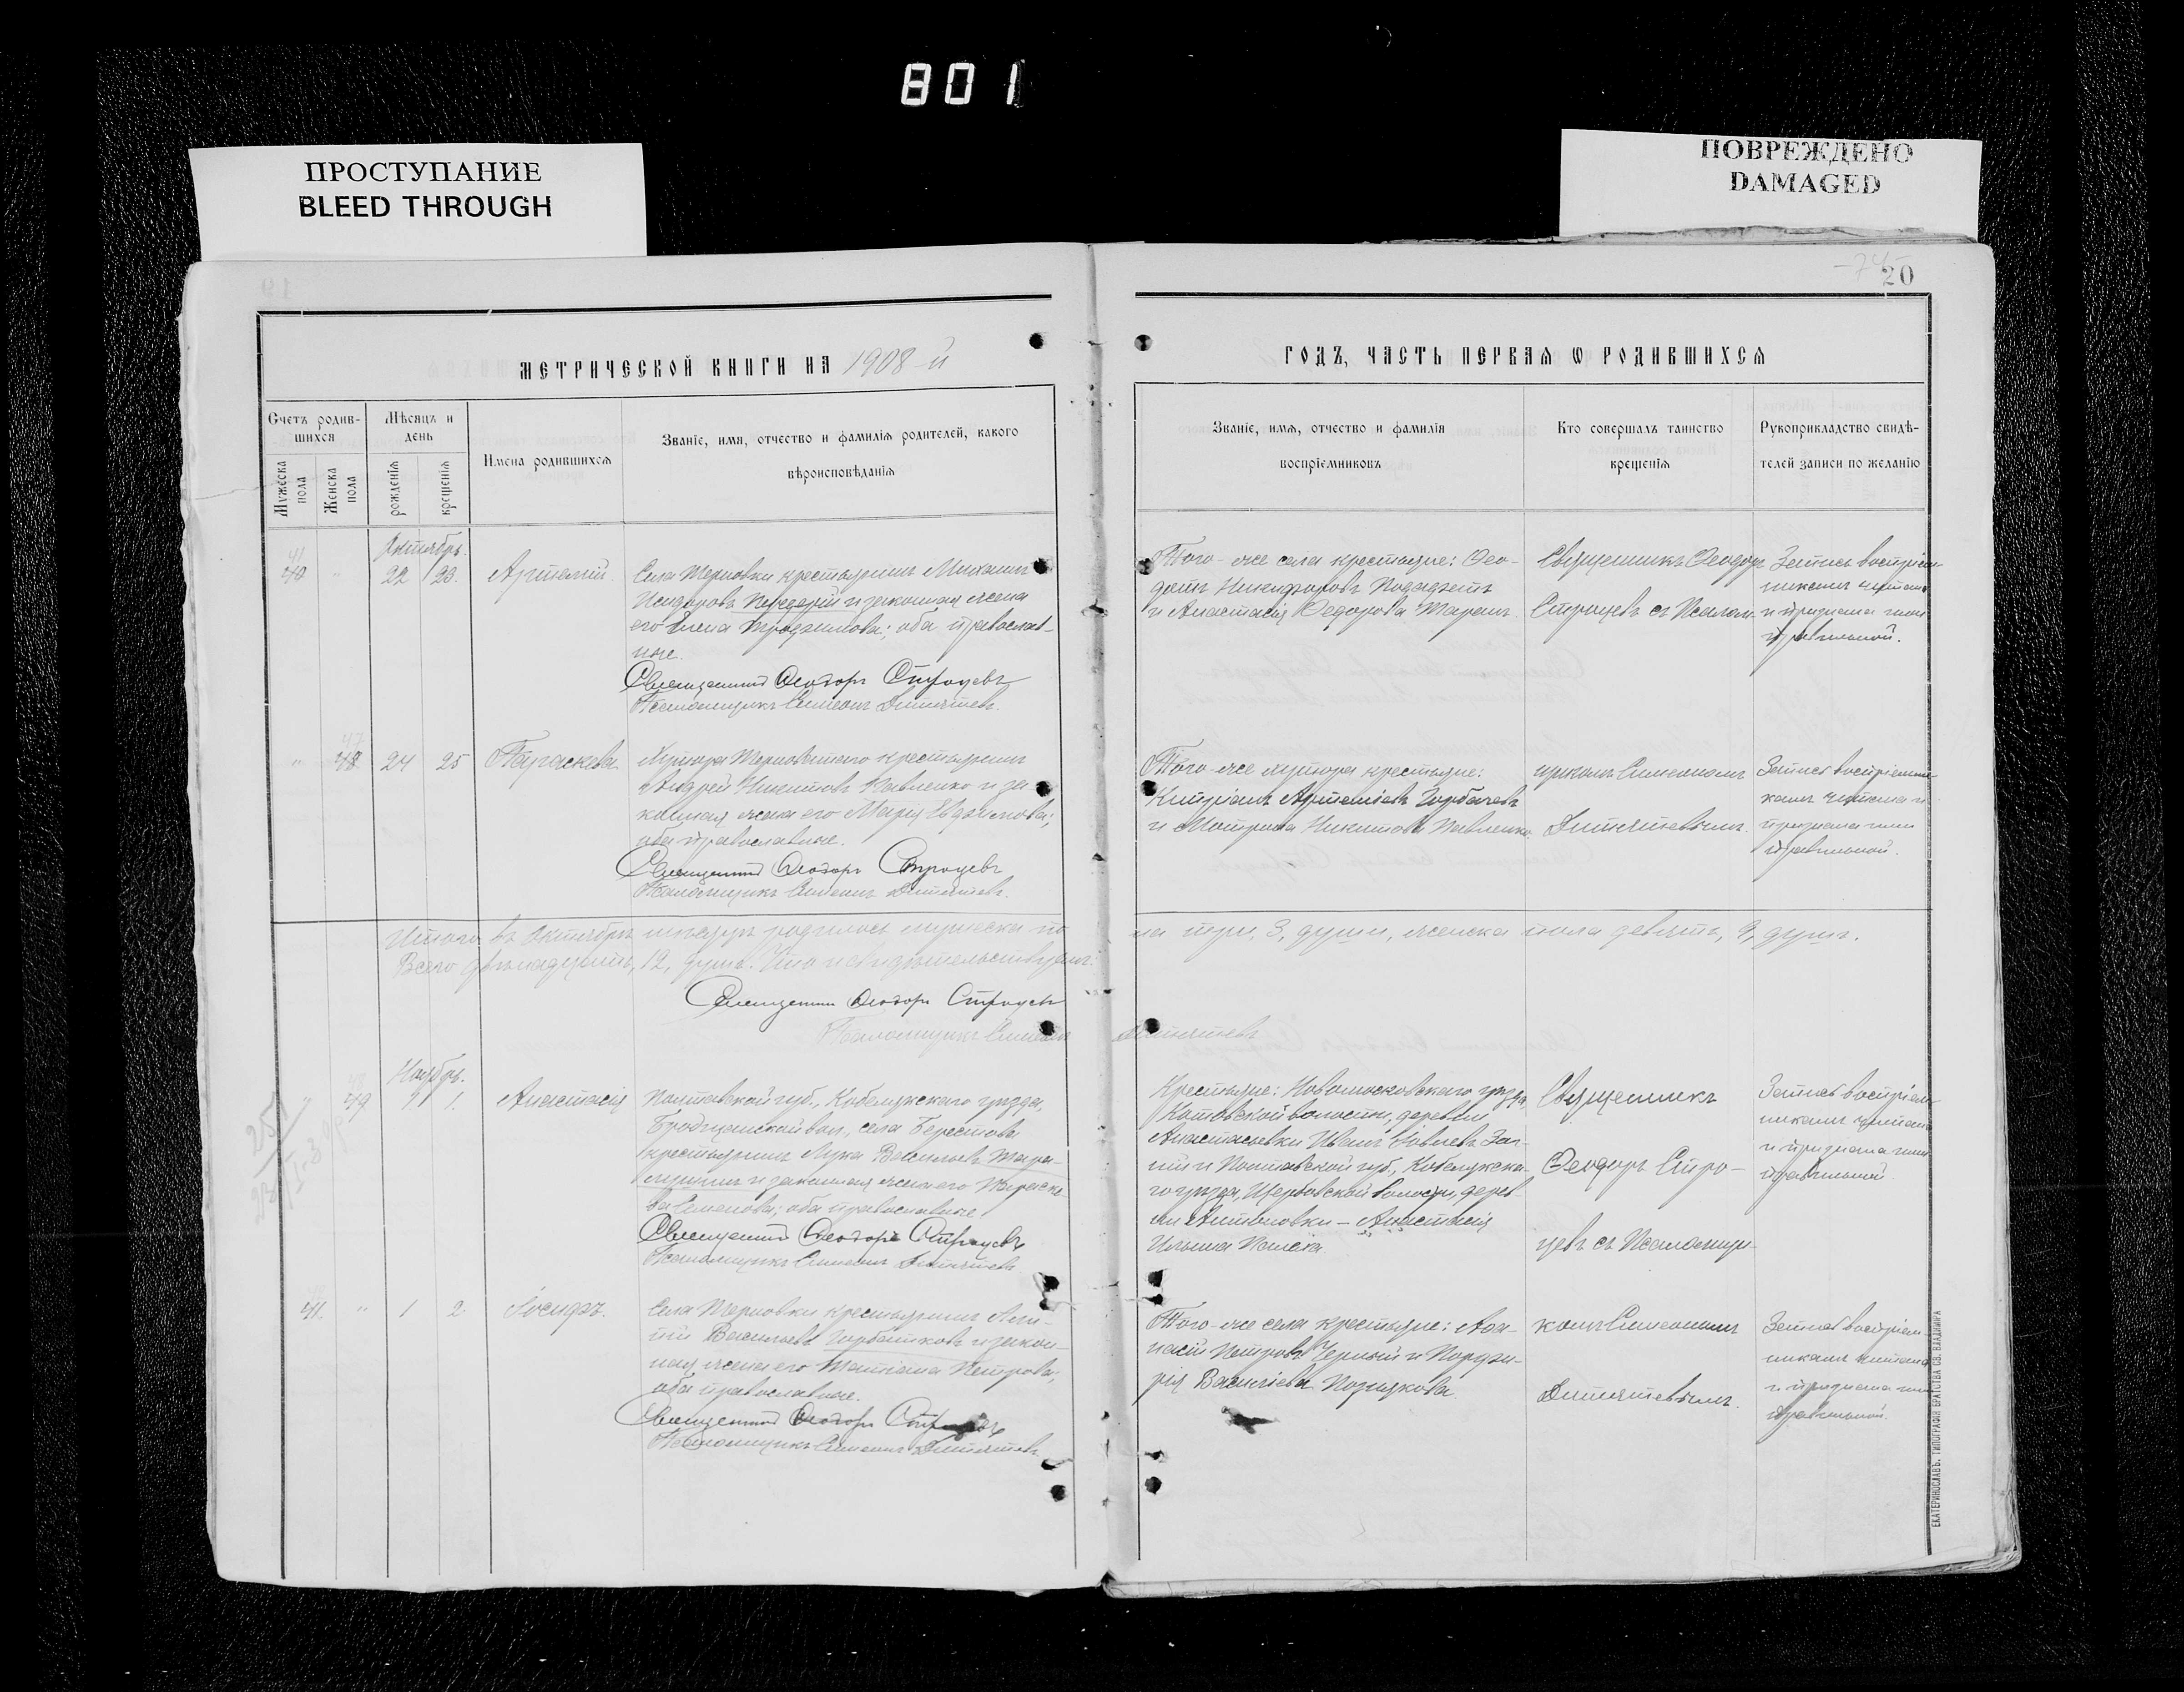 801
ПРОСТУПАНИЕ
BLEED THROUGH
ПОВРЕЖДЕНО
DAMAGED
20
МЕТРИЧЕСКОЙ КНИГИ НА 1908-й
ГОДЪ, ЧАСТЬ ПЕРВАЯ Ѡ РОДИВШИХСЯ
Счетъ родив-
шихся
Мужеска
пола
Женска
пола
Мѣсяцъ и
день
рожденія
крещенія
Имена родившихся
Званіе, имя, отчество и фамилія родителей, какого
вѣроисповѣданія
Званіе, имя, отчество и фамилія
воспріемниковъ
Кто совершалъ таинство
крещенія
Рукоприкладство свидѣ-
телей записи по желанію
Октябрь.
41
40 22 23. Артемій.
Села Терновки крестьянинъ Михаилъ
Исидоровъ и законная жена
его Елена Трофимова; оба православ-
ные.
Священникъ Ѳеодоръ Строцевъ
Псаломщикъ Симеонъ
Того-же села крестьяне: Ѳео-
Никифоровъ
и Анастасія Ѳедорова Таранъ.
Священникъ Ѳеодоръ
Строцевъ съ Псалом-
Запись воспріем-
никамъ читана
и признана ими
правильной.
47
" 48 24 25 Параскева
Хутора Терновскаго крестьянинъ
Андрей Никитовъ Павленко и за-
конная жена его Марія Евфимова;
оба православные.
Священникъ Ѳеодоръ Строцевъ
Псаломщикъ Симеонъ
Того-же хутора крестьяне:
Кипріанъ Артеміевъ Горбачевъ
и Мотрона Никитова Павленко.
щикомъ Симеономъ
Запись воспріемни-
камъ читана и
признана ими
правильной.
Итого въ Октябрѣ мѣсяцѣ родилось мужеска по-
ла три, 3, души, женска пола девять, 9, душъ.
Всего двѣнадцать, 12, душъ. Что и свидѣтельствуемъ:
Священникъ Ѳеодоръ Строцевъ
Псаломщикъ Симеонъ
Ноябрь.
48
" 49 1 1. Анастасія
Полтавской губ., Кобелякскаго уѣзда,
вол., села
крестьянинъ Лука Васильевъ
и законная жена его Параске-
ва Семенова; оба православные
Священникъ Ѳеодоръ Строцевъ
Псаломщикъ Симеонъ
Крестьяне: Новомосковскаго уѣзда,
волости, деревни
Анастасьевки Иванъ
и Полтавской губ., Кобелякска-
го уѣзда, волости, дерев-
ни Антоновки — Анастасія
Ильина
Священникъ
Ѳеодоръ Стро-
цевъ съ Псаломщи-
Запись воспріем-
никамъ читана
и признана ими
правильной.
41. " 1 2. Іосифъ.
Села Терновки крестьянинъ
Васильевъ и закон-
ная жена его Татіана Петрова;
оба православные.
Священникъ Ѳеодоръ
Псаломщикъ Симеонъ
Того-же села крестьяне: Аѳа-
насій Петровъ Черный и Порфи-
рія Васильева
комъ Симеономъ
Запись воспріем-
никамъ читана
и признана ими
правильной.
ЕКАТЕРИНОСЛАВЪ. ТИПОГРАФІЯ БРАТСТВА СВ. ВЛАДИМІРА